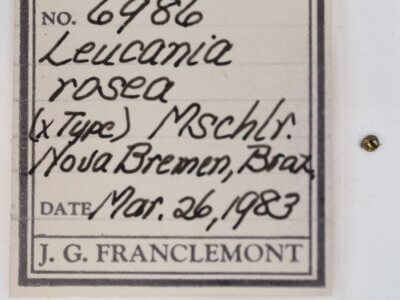 NO. 6986
Leucania
rosea
(x Type) Mschlr.
Nova Bremen, Braz.
DATE Mar. 26, 1983
J. G. FRANCLEMONT